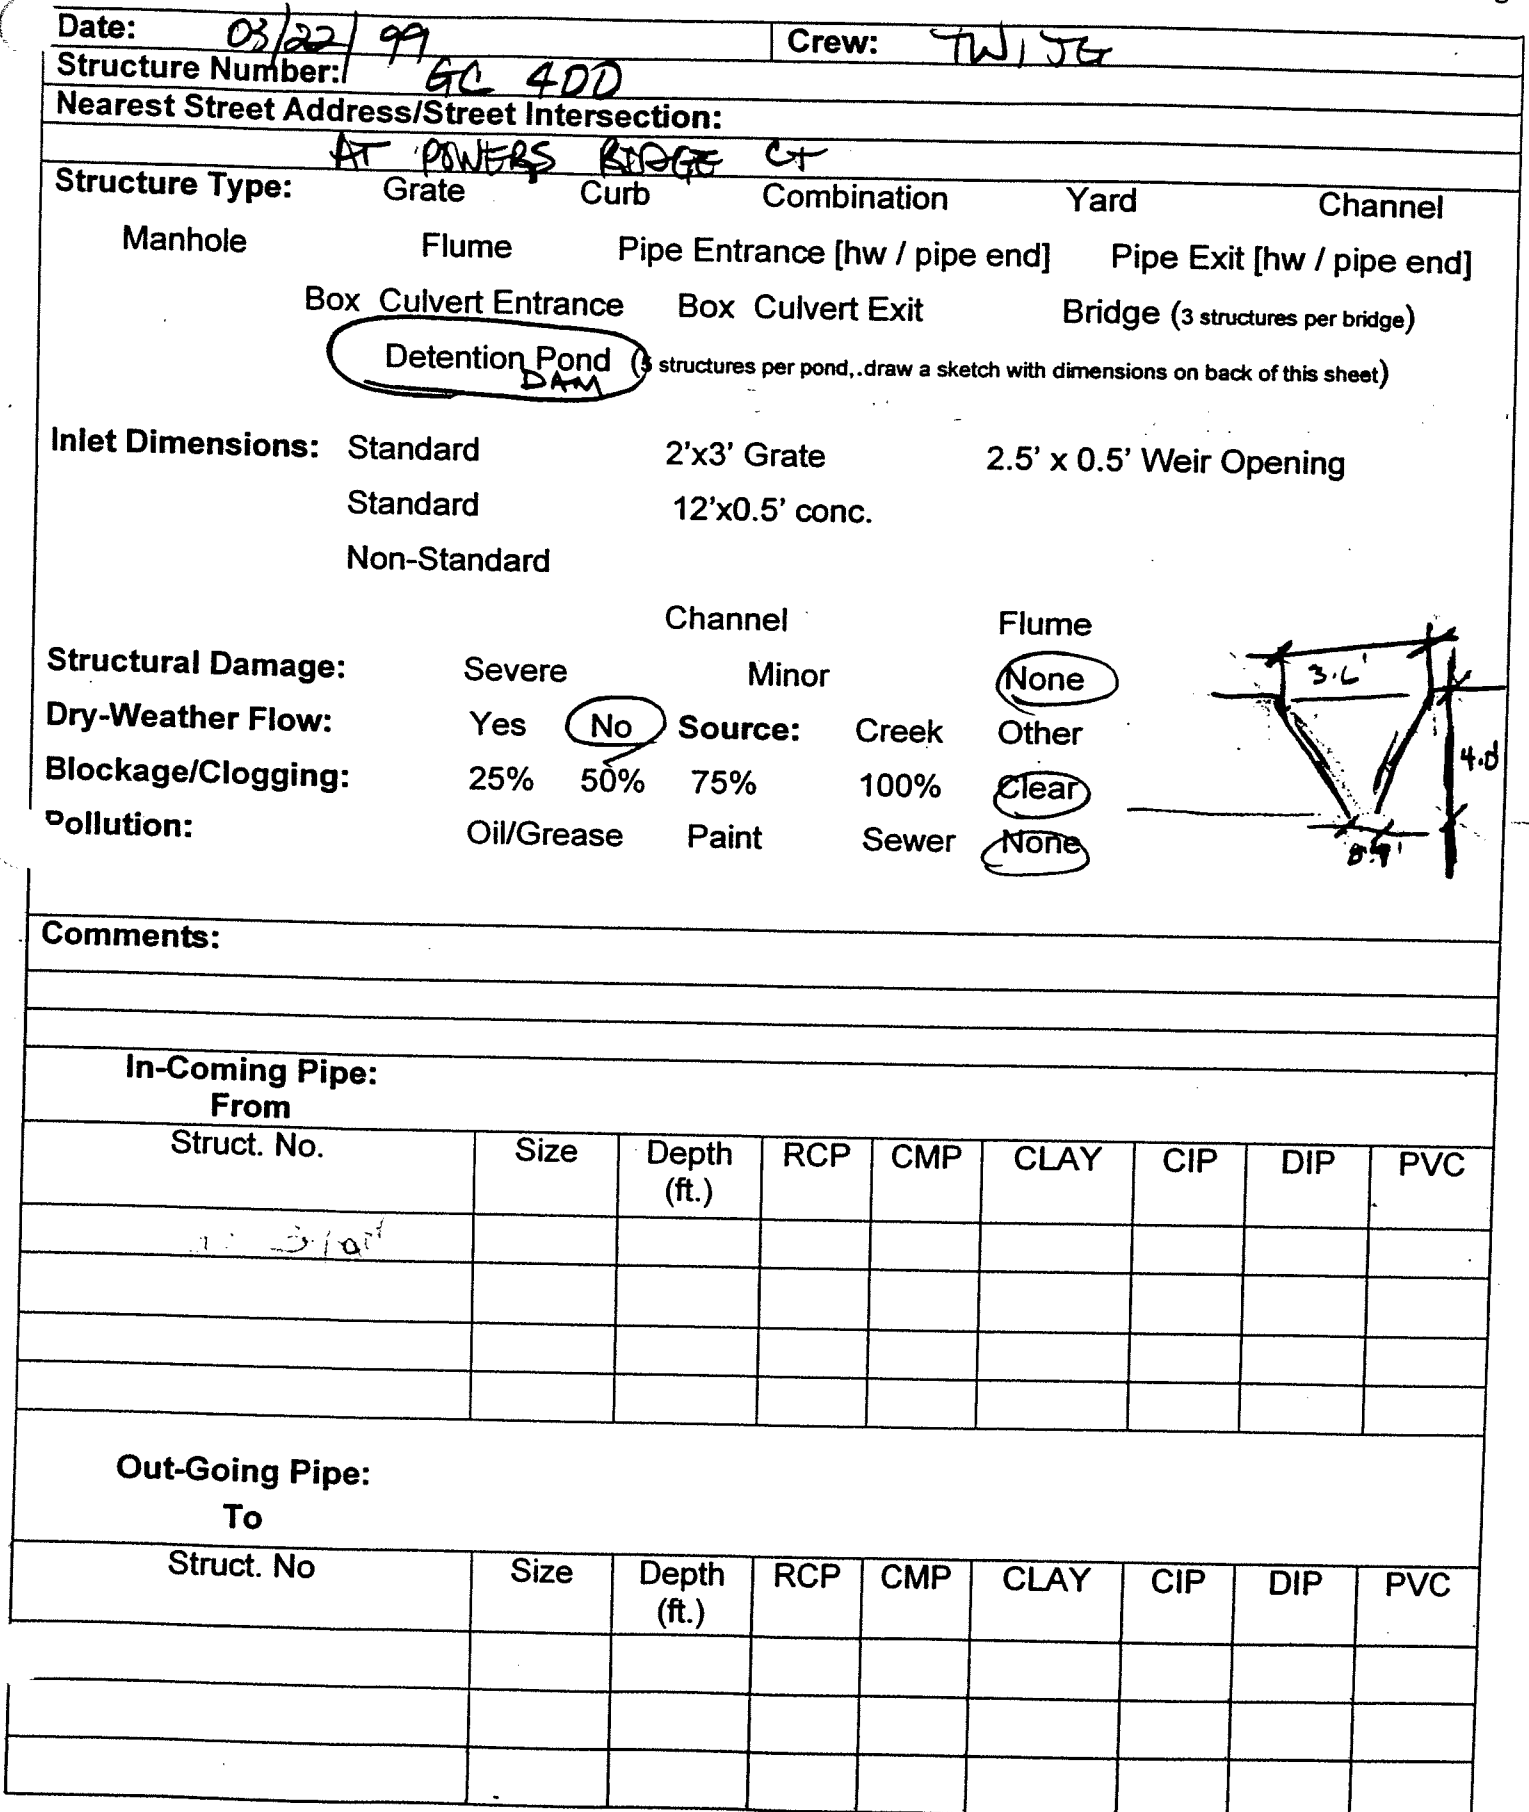 Date: 03/22/99 Crew: TW, JG
Structure Number: GC 4DD
Nearest Street Address/Street Intersection:
AT POWERS RIDGE CT
Structure Type: Grate Curb Combination Yard Channel
Manhole Flume Pipe Entrance [hw / pipe end] Pipe Exit [hw / pipe end]
Box Culvert Entrance Box Culvert Exit Bridge (3 structures per bridge)
Detention Pond (5 structures per pond,.draw a sketch with dimensions on back of this sheet)
DAM
Inlet Dimensions: Standard 2'x3' Grate 2.5' x 0.5' Weir Opening
Standard 12'x0.5' conc.
Non-Standard
Channel Flume
Structural Damage: Severe Minor None
3.6'
Dry-Weather Flow: Yes No Source: Creek Other
Blockage/Clogging: 25% 50% 75% 100% Clear
4.0'
Pollution: Oil/Grease Paint Sewer None
Comments:
In-Coming Pipe:
From
Struct. No. Size Depth (ft.) RCP CMP CLAY CIP DIP PVC
Out-Going Pipe:
To
Struct. No Size Depth (ft.) RCP CMP CLAY CIP DIP PVC